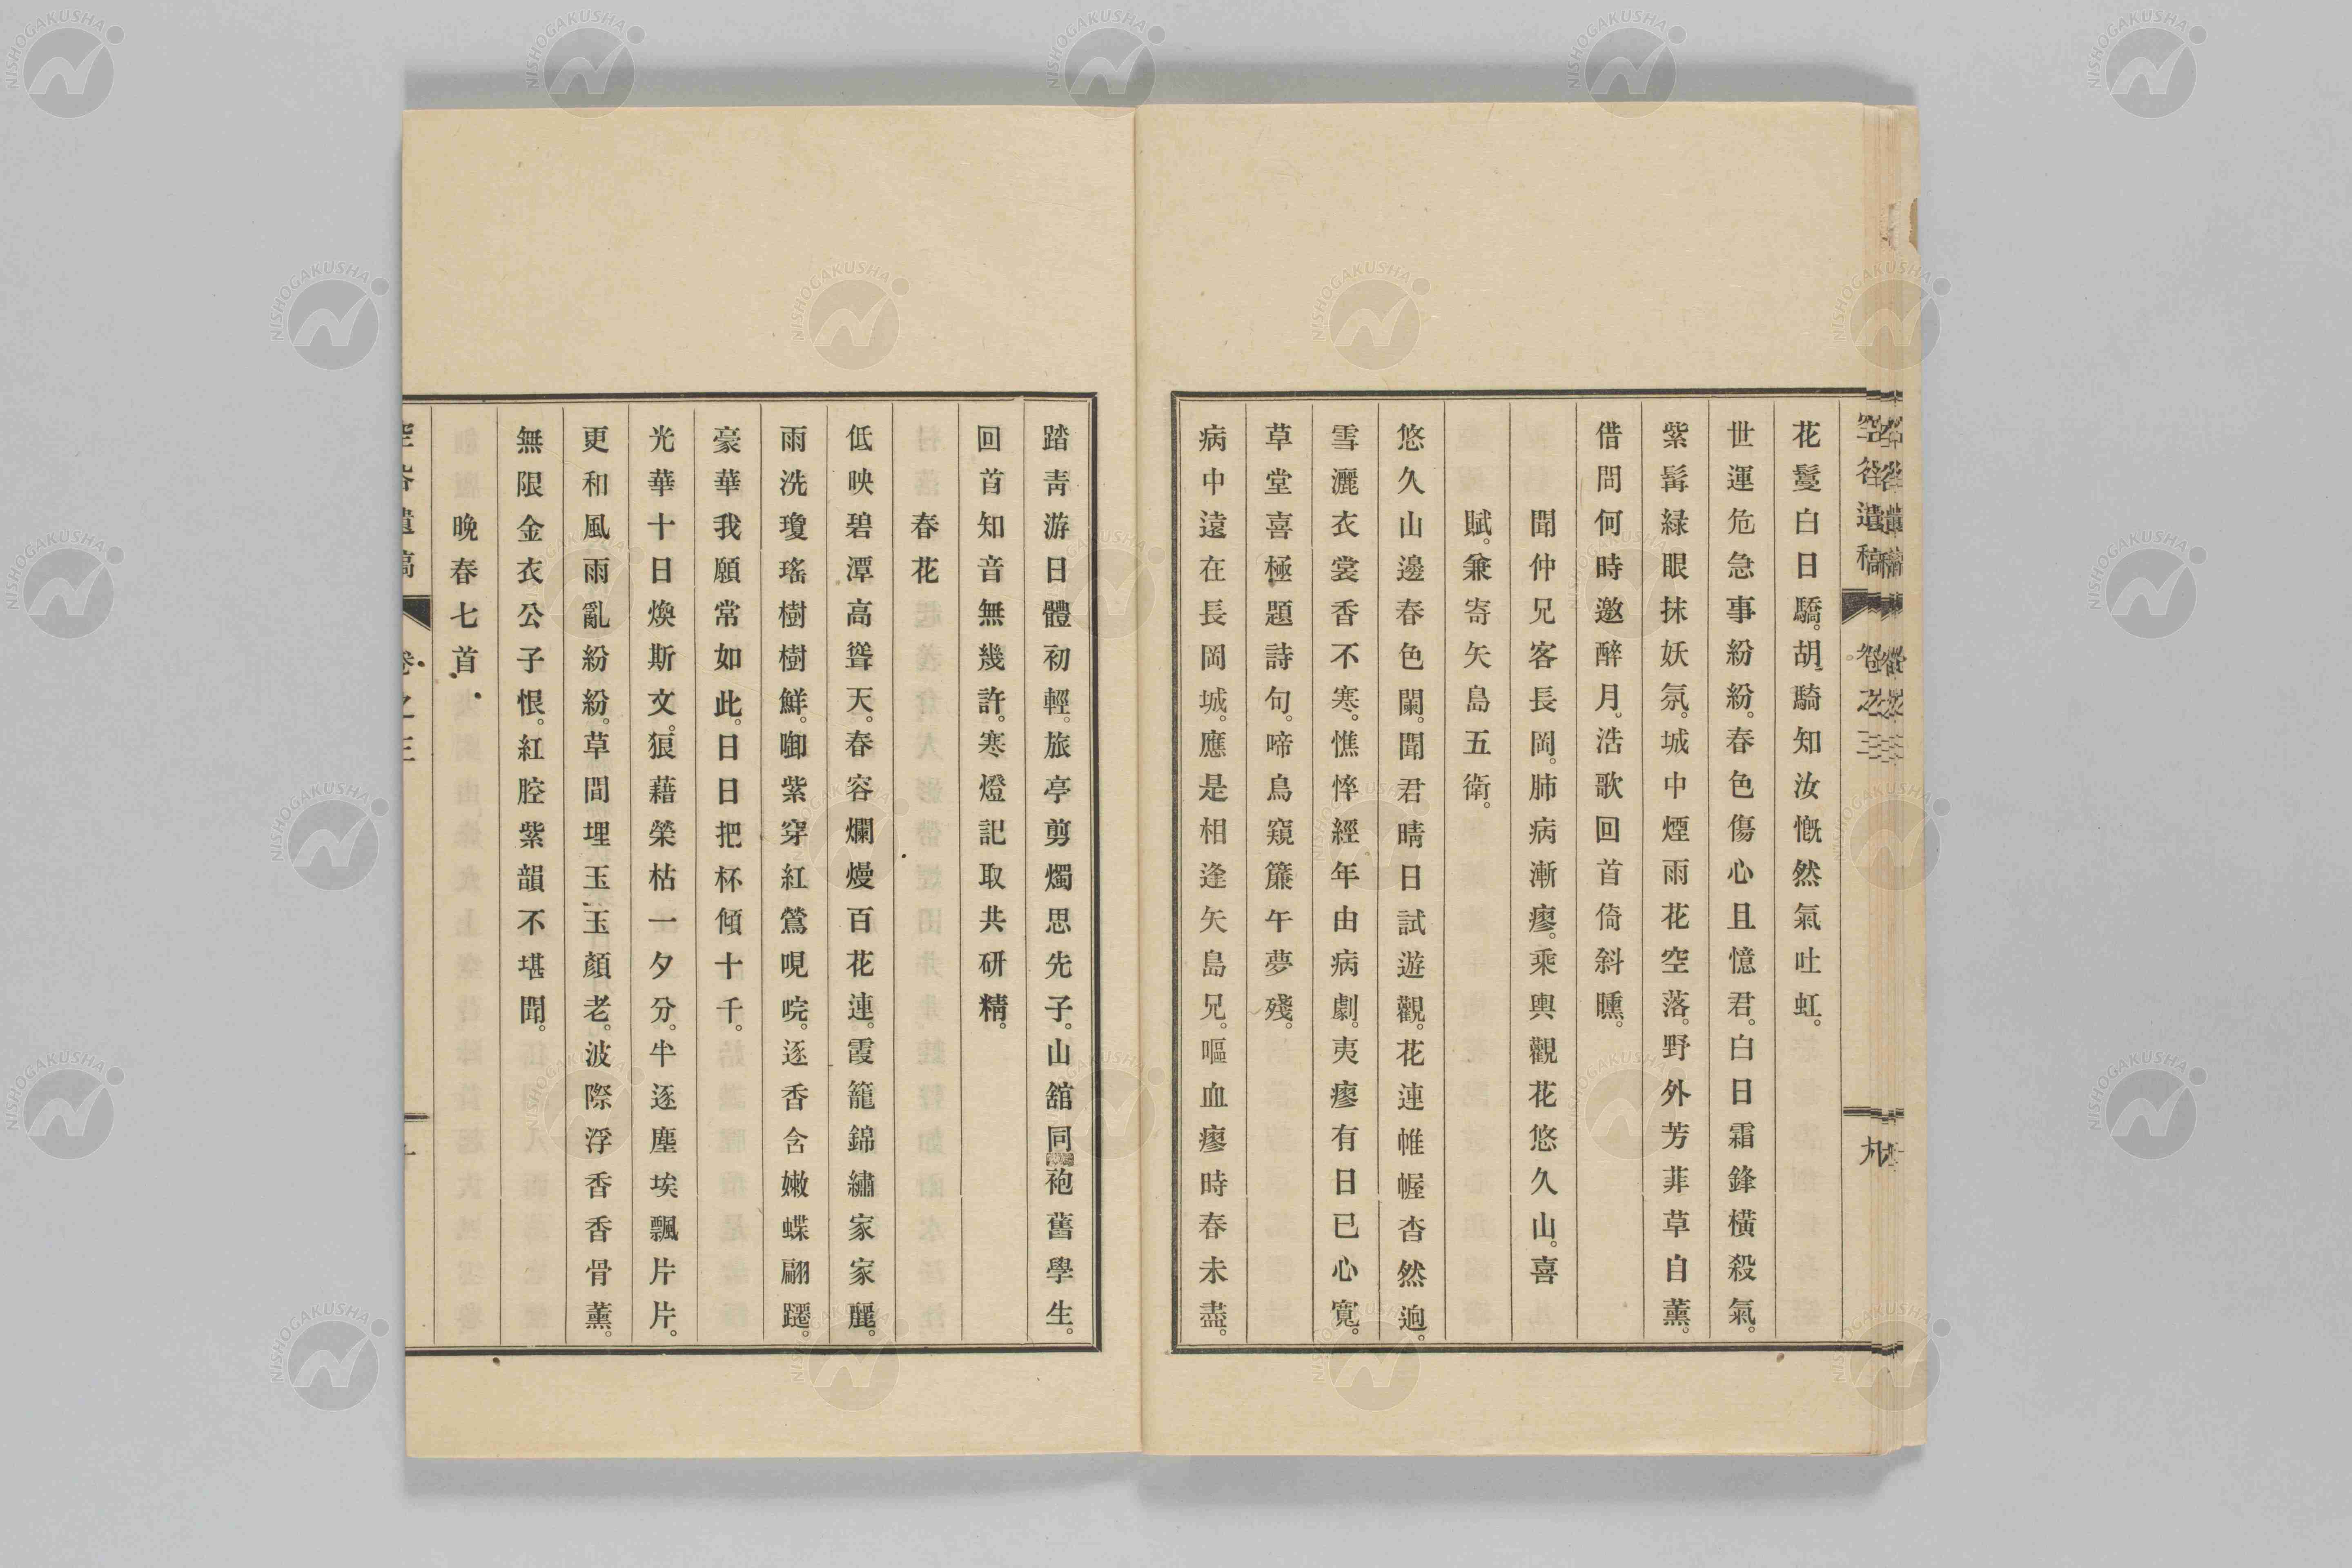 空谷遺稿 卷之三 九
花鬘白日驕。胡騎知汝慨然氣吐虹。
世運危急事紛紛。春色傷心且憶君。白日霜鋒橫殺氣。
紫髯緑眼抹妖氛。城中煙雨花空落。野外芳菲草自薫。
借問何時邀醉月。浩歌回首倚斜曛。
聞仲兄客長岡。肺病漸瘳。乘輿觀花悠久山。喜
賦。兼寄矢島五衛。
悠久山邊春色闌。聞君晴日試遊觀。花連帷幄杳然迥。
雪灑衣裳香不寒。憔悴經年由病劇。夷瘳有日已心寬。
草堂喜極題詩句。啼鳥窺簾午夢殘。
病中遠在長岡城。應是相逢矢島兄。嘔血瘳時春未盡。
踏靑游日體初輕。旅亭剪燭思先子。山舘同袍舊學生。
回首知音無幾許。寒燈記取共研精。
春花
低映碧潭高聳天。春容爛熳百花連。霞籠錦繡家家麗。
雨洗瓊瑤樹樹鮮。啣紫穿紅鶯睍睆。逐香含嫩蝶翩躚。
豪華我願常如此。日日把杯傾十千。
光華十日煥斯文。狼藉榮枯一夕分。半逐塵埃飄片片。
更和風雨亂紛紛。草間埋玉玉顏老。波際浮香香骨薰。
無限金衣公子恨。紅腔紫韻不堪聞。
晚春七首
遺稿 卷之三
NISHOGAKUSHA